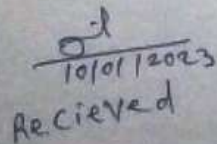 10/01/2023
Recieved